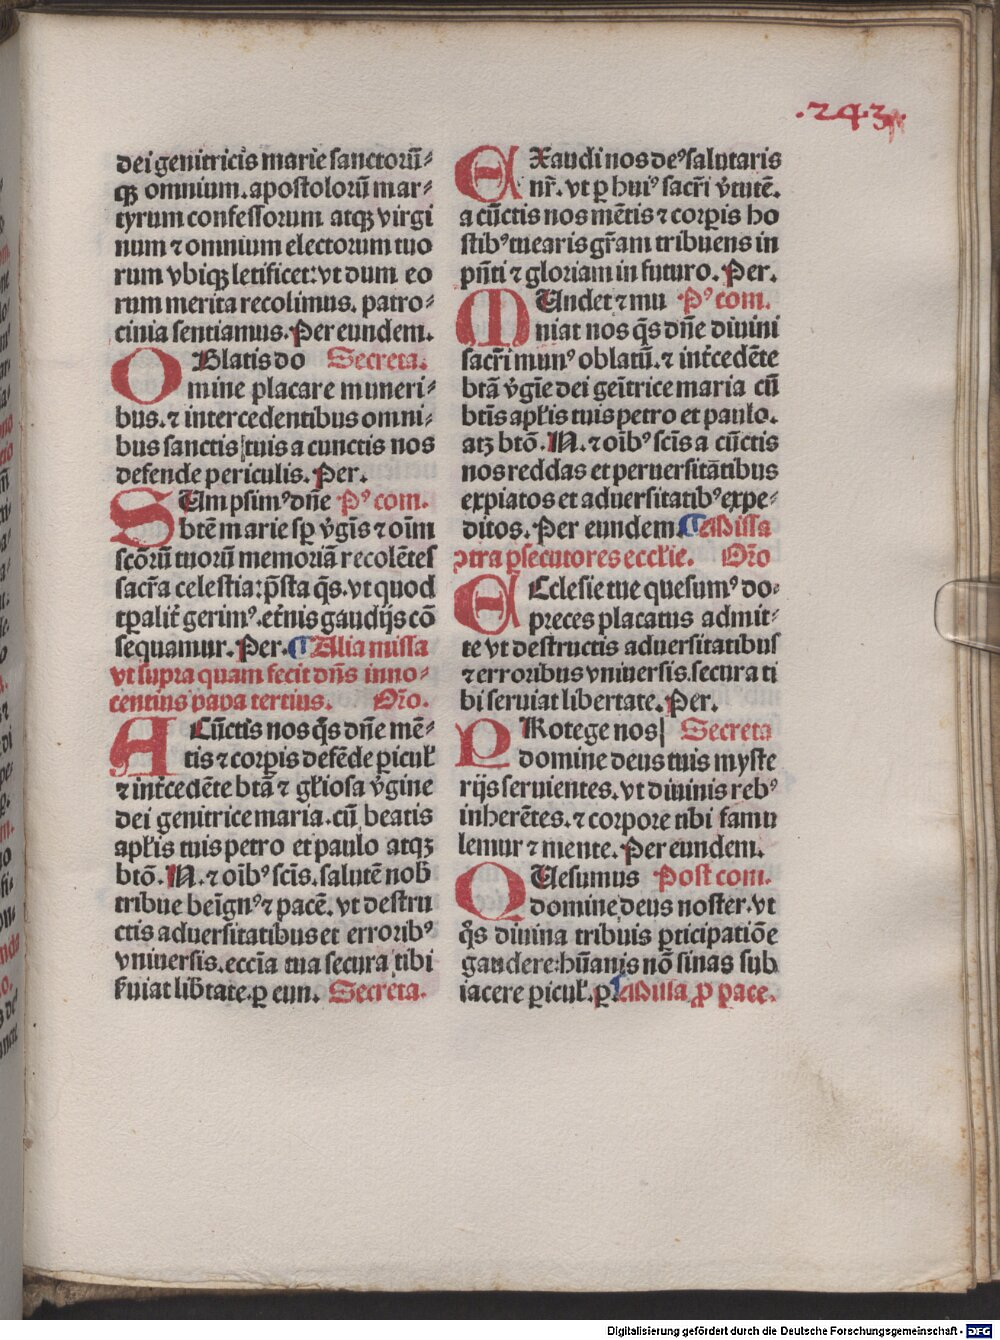 .243.
dei genitricis marie sanctorū-
qꝫ omnium. apostolorū mar-
tyrum confessorum atqꝫ virgi
num ⁊ omnium electorum tuo
rum vbiqꝫ letificet: vt dum eo
rum merita recolimus. patro-
cinia sentiamus. Per eundem.
OBlatis do Secreta.
mine placare muneri-
bus. ⁊ intercedentibus omni-
bus sanctis tuis a cunctis nos
defende periculis. Per.
SUmpsimꝰ dn̄e Pꝰ com.
btē marie sp̄ v̄gīs ⁊ oīm
scōrū tuorū memoriā recolētes
sacr̄a celestia: p̄sta q̄s. vt quod
tp̄alit̄ gerimꝰ. et̄nis gaudijs cō
sequamur. Per. ¶ Alia missa
vt supra quam fecit dn̄s inno-
centius papa tertius. Or̄o.
A Cūctis nos q̄s dn̄e mē-
tis ⁊ corp̄is defēde picuł
⁊ int̄cedēte btā ⁊ gl̄iosa v̄gine
dei genitrice maria. cū beatis
apl̄is tuis petro et paulo atqꝫ
btō. N. ⁊ oībꝰ scīs. salutē nob̄
tribue beīgnꝰ ⁊ pacē. vt destru
ctis aduersitatibus et erroribꝰ
vniuersis. eccīa tua secura tibi
ẜuiat lib̄tate. ꝑ eun. Secreta.
EXaudi nos deꝰ salutaris
nr̄. vt ꝑ huiꝰ sacr̄i v̄tutē.
a cūctis nos mētis ⁊ corp̄is ho
stibꝰ tuearis gr̄am tribuens in
pn̄ti ⁊ gloriam in futuro. Per.
MUndet ⁊ mu Pꝰ com.
niat nos q̄s dn̄e diuini
sacr̄i munꝰ oblatū. ⁊ int̄cedēte
btā v̄gīe dei geīt̄rice maria cū
btīs apl̄is tuis petro et paulo.
atꝫ btō. N. ⁊ oībꝰ scīs a cūctis
nos reddas et peruersitātibus
expiatos et aduersitatibꝰ expe-
ditos. Per eundem. ¶ Missa
ↄtra ꝑsecutores eccl̄ie. Or̄o
EEclesie tue quesumꝰ do-
preces placatus admit-
te vt destructis aduersitatibus
⁊ erroribus vniuersis. secura ti
bi seruiat libertate. Per.
PRotege nos Secreta
domine deus tuis myste
rijs seruientes. vt diuinis rebꝰ
inherētes. ⁊ corpore tibi famu
lemur ⁊ mente. Per eundem.
QUesumus Post com.
domine deus noster. vt
q̄s diuina tribuis ꝑticipatiōe
gaudere: hūanis nō sinas sub
iacere picuł. ꝑ. ¶ Missa ꝓ pace.
Digitalisierung gefördert durch die Deutsche Forschungsgemeinschaft - DFG